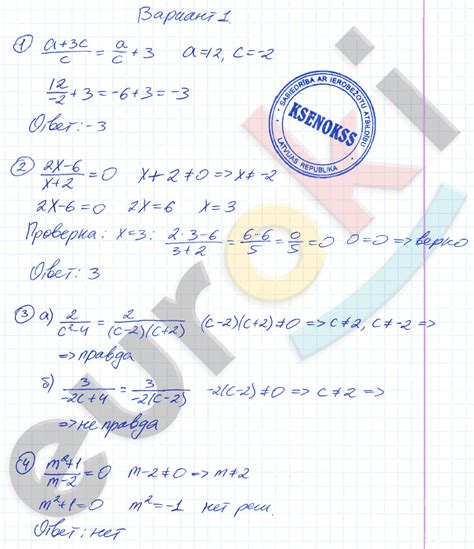 Вариант 1.
① (a+3c)/c = a/c + 3 a=12, c=-2
12/-2 + 3 = -6+3 = -3
Ответ: -3
SABIEDRĪBA AR IEROBEŽOTU ATBILDĪBU
KSENOKSS
LATVIJAS REPUBLIKA
② (2x-6)/(x+2) = 0 x+2≠0 => x≠-2
2x-6=0 2x=6 x=3
Проверка: x=3: (2·3-6)/(3+2) = (6-6)/5 = 0/5 = 0 0=0 => верно
Ответ: 3
③ а) 2/(c²-4) = 2/((c-2)(c+2)) (c-2)(c+2)≠0 => c≠2, c≠-2 =>
=> правда
б) 3/(-2c+4) = 3/(-2(c-2)) -2(c-2)≠0 => c≠2 =>
=> не правда
④ (m²+1)/(m-2) = 0 m-2≠0 => m≠2
m²+1=0 m²=-1 нет реш.
Ответ: нет
euroki